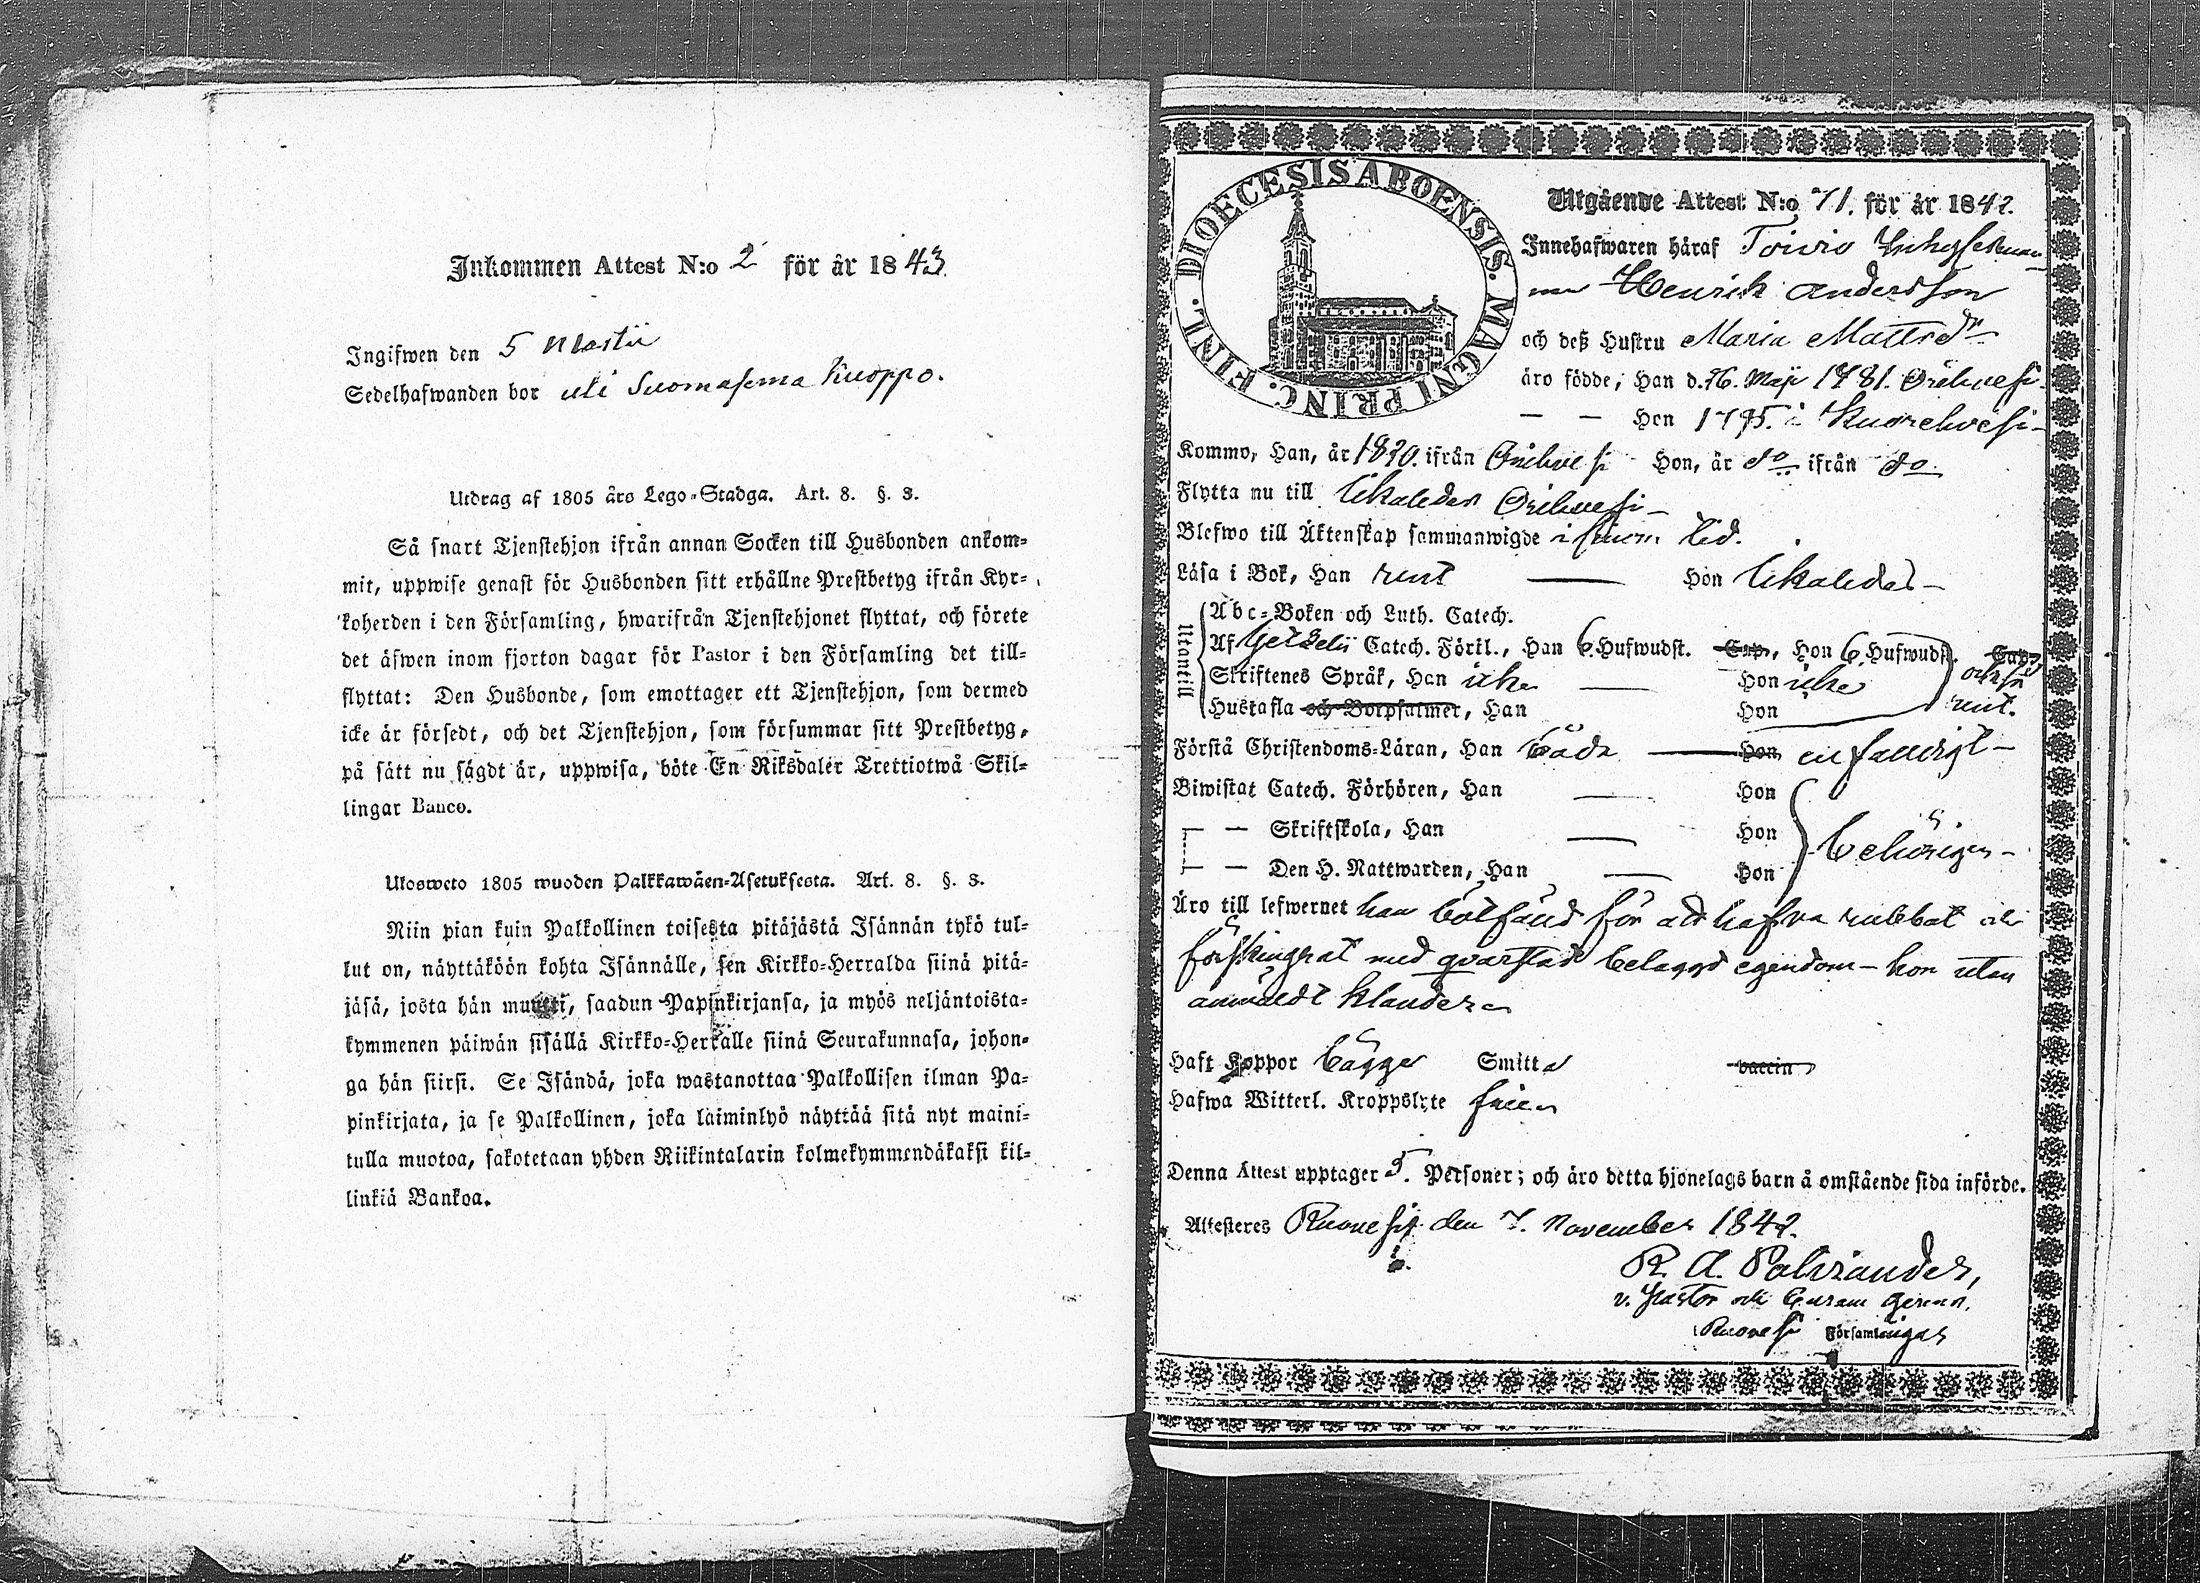 Inkommen Attest N:o 2 för år 1843
Ingifwen den 5 Martii
Sedelhafwanden bor uti Suomasema Kuoppo.
Utdrag af 1805 års Lego-Stadga. Art. 8. §. 3.
Så snart Tjenstehjon ifrån annan Socken till Husbonden ankom-
mit, uppwise genast för Husbonden sitt erhållne Prestbetyg ifrån Kyr-
koherden i den Församling, hwarifrån Tjenstehjonet flyttat, och förete
det äfwen inom fjorton dagar för Pastor i den Församling det till-
flyttat: Den Husbonde, som emottager ett Tjenstehjon, som dermed
icke är försedt, och det Tjenstehjon, som försummar sitt Prestbetyg,
på sätt nu sagdt är, uppwisa, böte En Riksdaler Trettiotwå Skil-
lingar Banco.
Ulosweto 1805 wuoden Palkkawäen-Asetuksesta. Art. 8. §. 3.
Niin pian kuin Palkollinen toisesta pitäjästä Isännän tykö tul-
lut on, näyttäköön kohta Isännälle, sen Kirkko-Herralda siinä pitä-
jäsä, josta hän muutti, saadun Papinkirjansa, ja myös neljäntoista-
kymmenen päiwän sisällä Kirkko-Herralle siinä Seurakunnasa, johon-
ga hän siirsi. Se Isändä, joka wastanottaa Palkollisen ilman Pa-
pinkirjata, ja se Palkollinen, joka laiminlyö näyttää sitä nyt maini-
tulla muotoa, sakotetaan yhden Riikintalarin kolmekymmendäkaksi kil-
linkiä Bankoa.
DIOECESIS ABOENSIS. MAGNI PRINC. FINL.
Utgående Attest N:o 71. för år 1842.
Innehafwaren häraf Toivio
Henrik Andersson
och deß Hustru Maria Mattsdr
äro födde, Han d. 26. Maji 1781. Orihvesi
— — Hon 1795. i Kuorehvesi
Kommo, Han, år 1820. ifrån Orihvesi Hon, år do ifrån do
Flytta nu till likaledes Orihvesi
Blefwo till Äktenskap sammanwigde i sinom tid.
Läsa i Bok, Han rent — Hon likaledes
Utontill
Abc-Boken och Luth. Catech.
Af Gezelii Catech. Förkl., Han 6. Hufwudst. Cap., Hon 6. Hufwudst. Cap.
Skriftenes Språk, Han icke — Hon icke också
Hustafla och Botpsalmer, Han Hon rent.
Förstå Christendoms-Läran, Han båda — Hon enfaldigt
Biwistat Catech. Förhören, Han — Hon
— — Skriftskola, Han — Hon behörigen
— — Den H. Nattwarden, Han — Hon
Äro till lefwernet han botfäld för att hafva rubbat och
förskingrat med qvarstad belagd egendom — hon utan
anmäldt klander
Haft Koppor bägge Smitt vaccin
Hafwa Witterl. Kroppslyte
Denna Attest upptager 5. Personer; och äro detta hjonelags barn å omstående sida införde.
Attesteres Ruovesi den 7. November 1842.
R. A. Palviander,
v. Pastor och Curam Gerens.
Ruovesi Församlingar